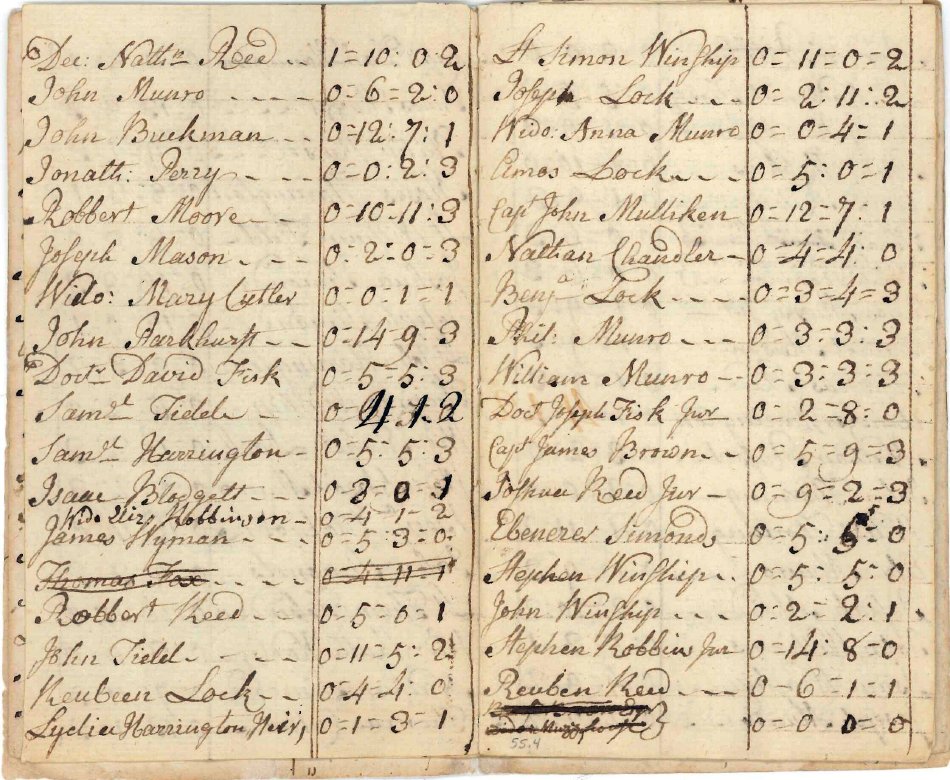 Dec: Nathn Reed - - 1=10: 0 2
John Munro - - - - 0=6=2:0
John Buckman - - 0=12:7:1
Jonath: Perry - - 0=0:2:3
Robbert Moore - - 0=10=11:3
Joseph Mason - - - 0:2:0=3
Wido: Mary Cutler 0:0:1=1
John Parkhurst - - 0=14=9:3
Doctr David Fisk 0=5=5:3
Samel Tidd - 0= 4 1=2
Samel Harrington - 0=5:5:3
Isaac Blodgett - - - 0=3=0=1
Wido Eliz Robbinson - 0=4=1=2
James Wyman - - - 0=5:3=0
Thomas Fox - - - - 0=4=11=1
Robbert Reed - - - 0=5=0:1
John Tidd - - - - 0=11=5:2
Reubeen Lock - - 0=4=4:0
Lydia Harrington Heirs 0=1=3:1
Lt Simon Winship 0=11=0=2
Joseph Lock - - - 0=2:11:2
Wido: Anna Munro 0=0=4=1
Amos Lock - - - 0=5:0=1
Capt John Mulliken 0=12=7:1
Nathan Chandler - 0=4=4:0
Benja Lock - - - - 0=3=4=3
Phil: Munro - - - 0=3:3:3
William Munro - - 0=3:3=3
Doct Joseph Fisk Jur 0=2=8:0
Capt James Brown - - 0=5=9=3
Joshua Reed Jur - 0=9=2=3
Ebenezer Simonds 0=5: =0
Stephen Winship - - 0=5:5:0
John Winship - - - 0=2=2:1
Stephen Robbins Jur 0=14:8=0
Reuben Reed - - - 0=6=1=1
0=0:0=0
55.4